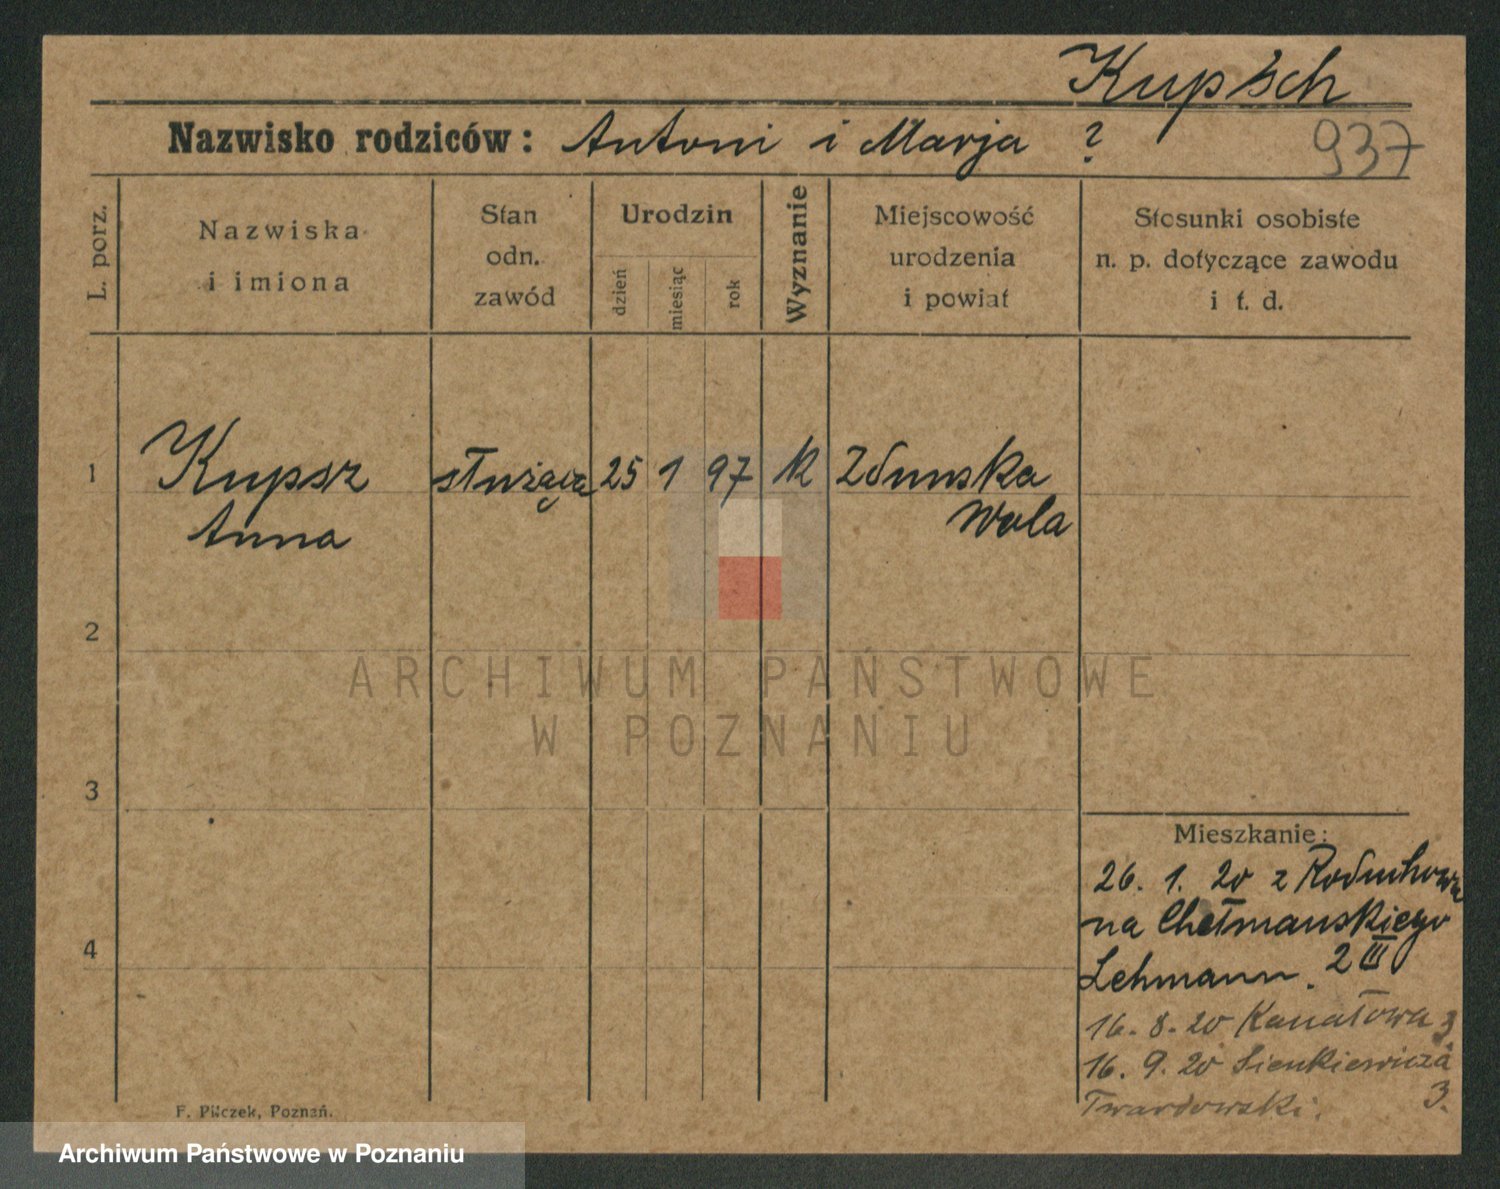 Kupsch
Nazwisko rodziców: Antoni i Marja ?
937
L. porz.
Nazwiska
i imiona
Stan
odn.
zawód
Urodzin
dzień
miesiąc
rok
Wyznanie
Miejscowość
urodzenia
i powiat
Stosunki osobiste
n. p. dotyczące zawodu
i t. d.
1
Kupsz
Anna
służąca
25
1
97
k
Zduńska
Wola
2
3
4
ARCHIWUM PAŃSTWOWE
W POZNANIU
Mieszkanie:
26. 1. 20 z Raduchowa
na Chełmańskiego
Lehmann. 2 III
16. 8. 20 Kanałowa 3
16. 9. 20 Sienkiewicza
Twardowski. 3.
F. Pilczek, Poznań.
Archiwum Państwowe w Poznaniu